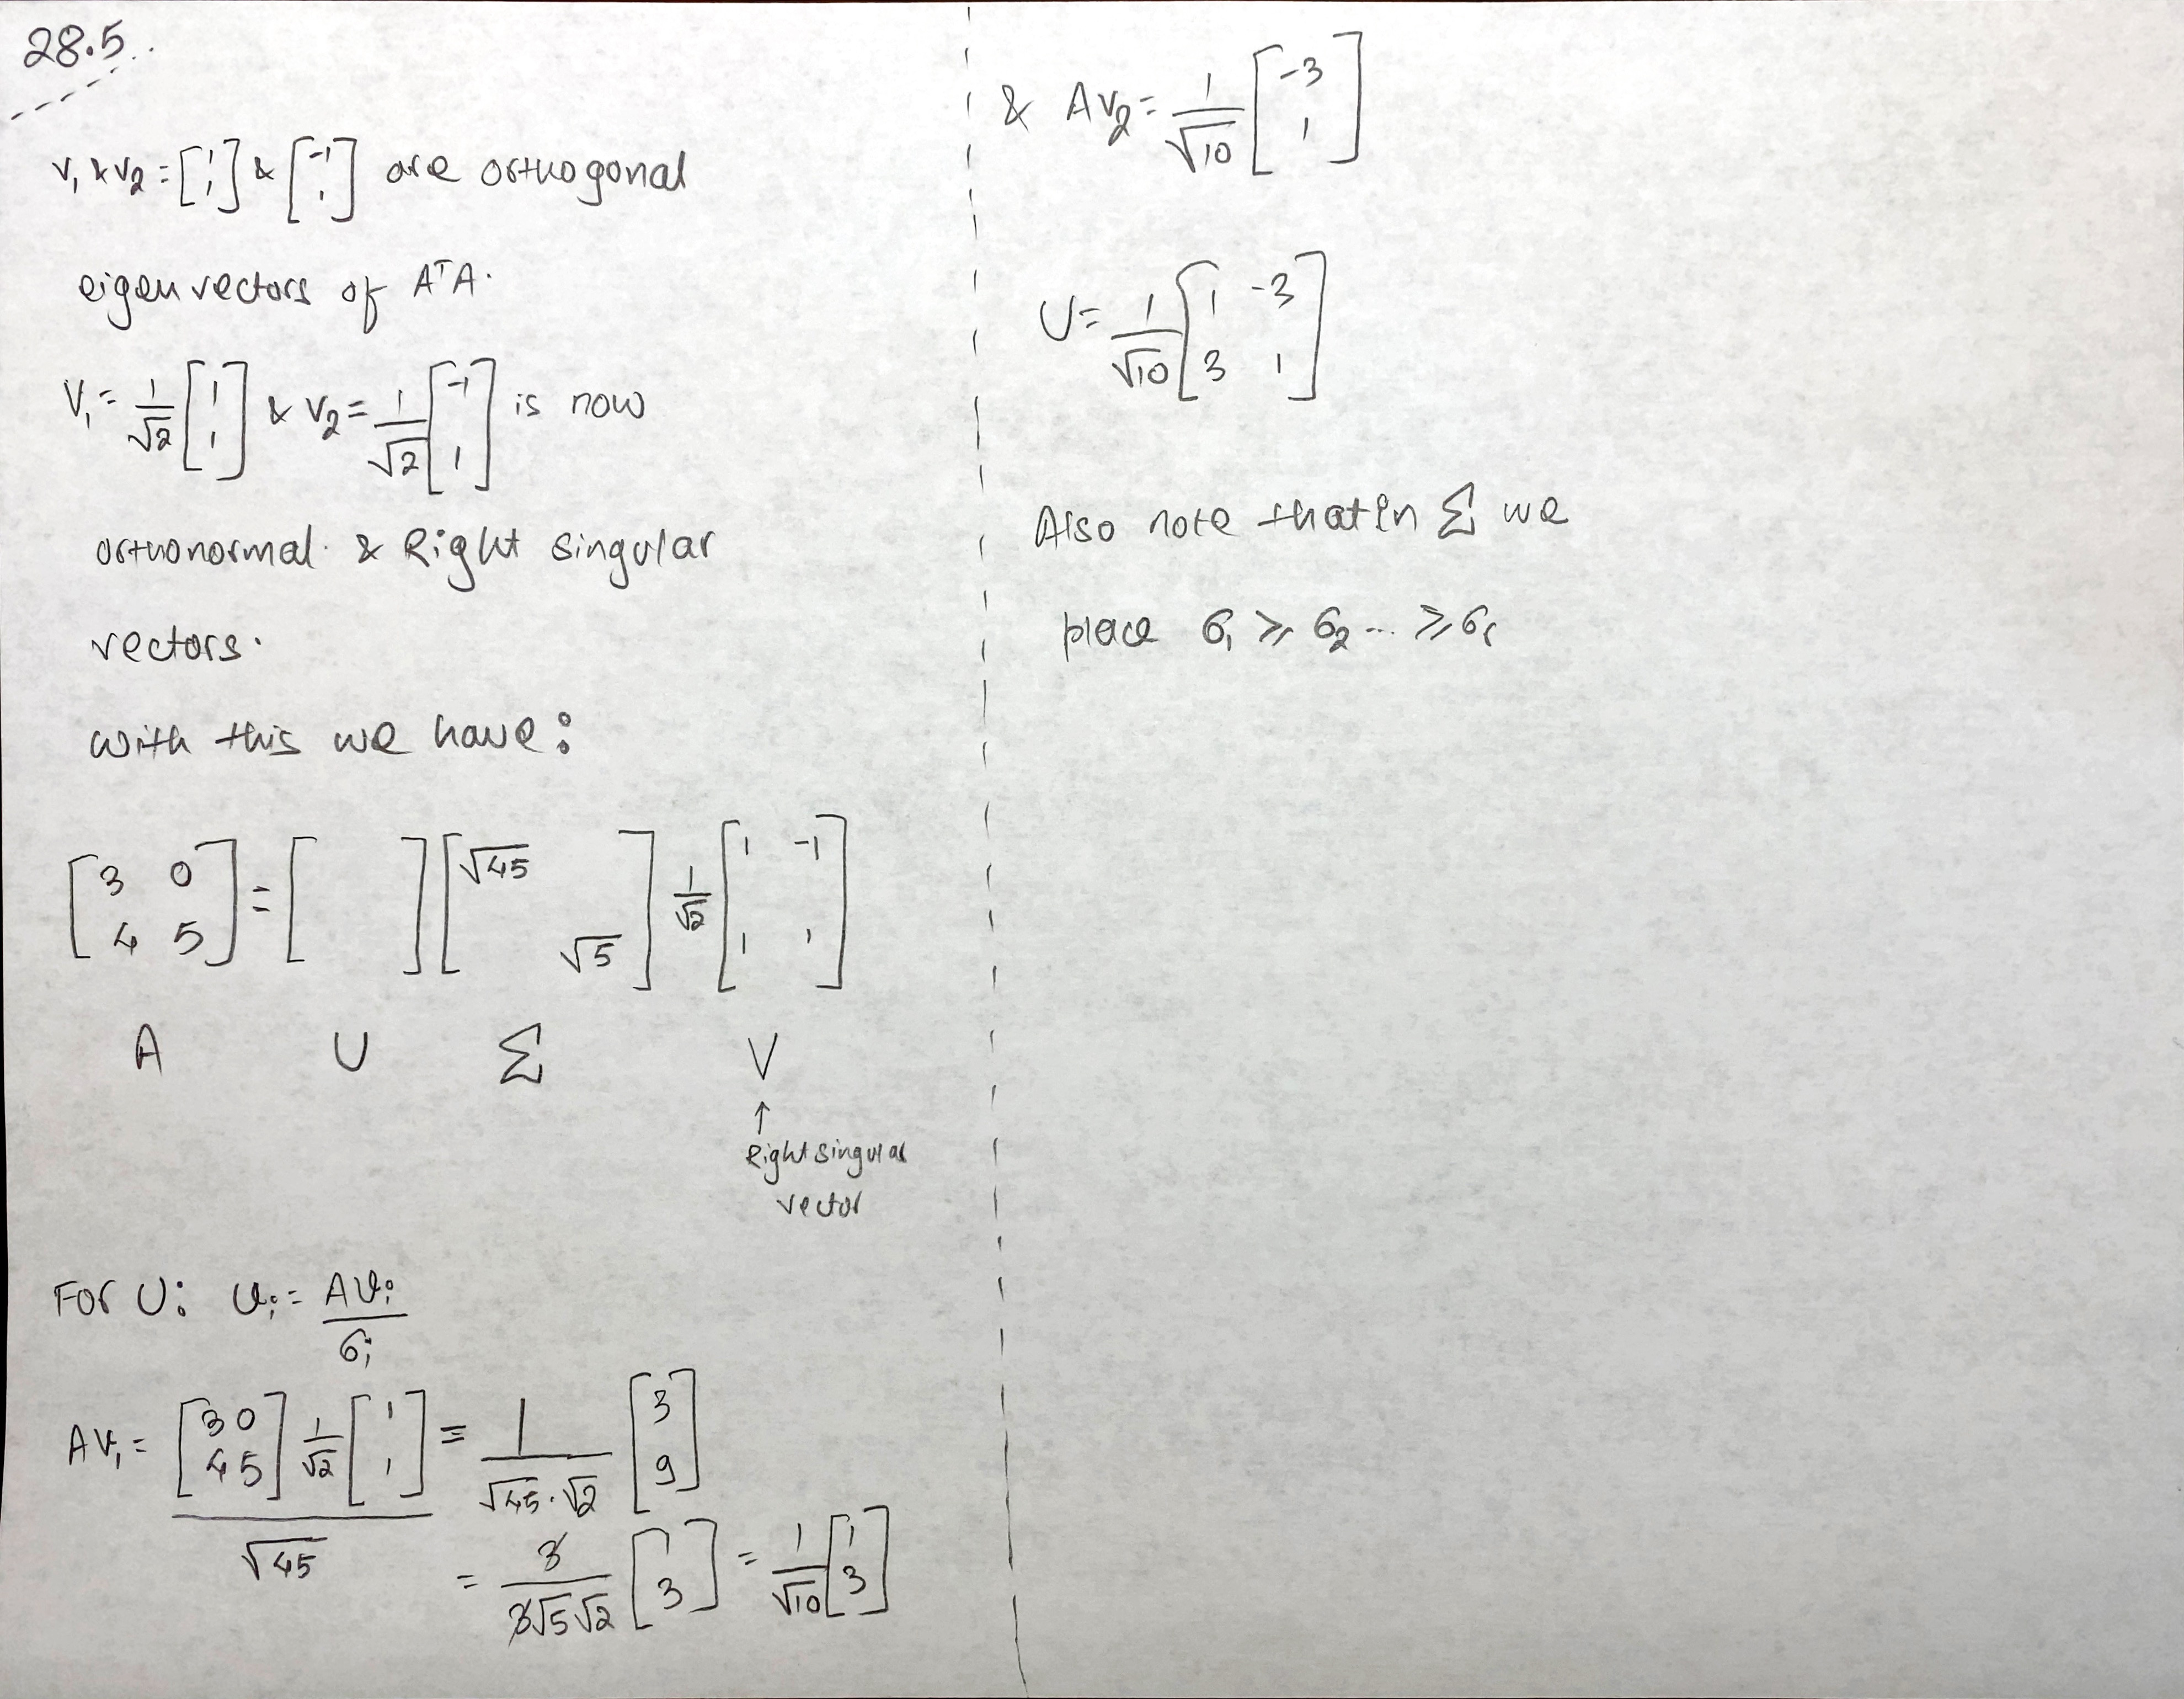 28.5.
v₁ & v₂ = [1; 1] & [-1; 1] are orthogonal
eigenvectors of AᵀA.
V₁ = 1/√2 [1; 1] & V₂ = 1/√2 [-1; 1] is now
orthonormal & Right singular
vectors.
with this we have:
[3 0; 4 5] = [ ] [√45 ; √5] 1/√2 [1 -1; 1 1]
A U Σ V
↑
Right singular
vector
For U: uᵢ = Avᵢ/σᵢ
AV₁ = [3 0; 4 5] 1/√2 [1; 1] / √45 = 1/(√45·√2) [3; 9]
= 3/(3√5√2) [1; 3] = 1/√10 [1; 3]
& AV₂ = 1/√10 [-3; 1]
U = 1/√10 [1 -3; 3 1]
Also note that in Σ we
place σ₁ ≥ σ₂ ... ≥ σᵣ